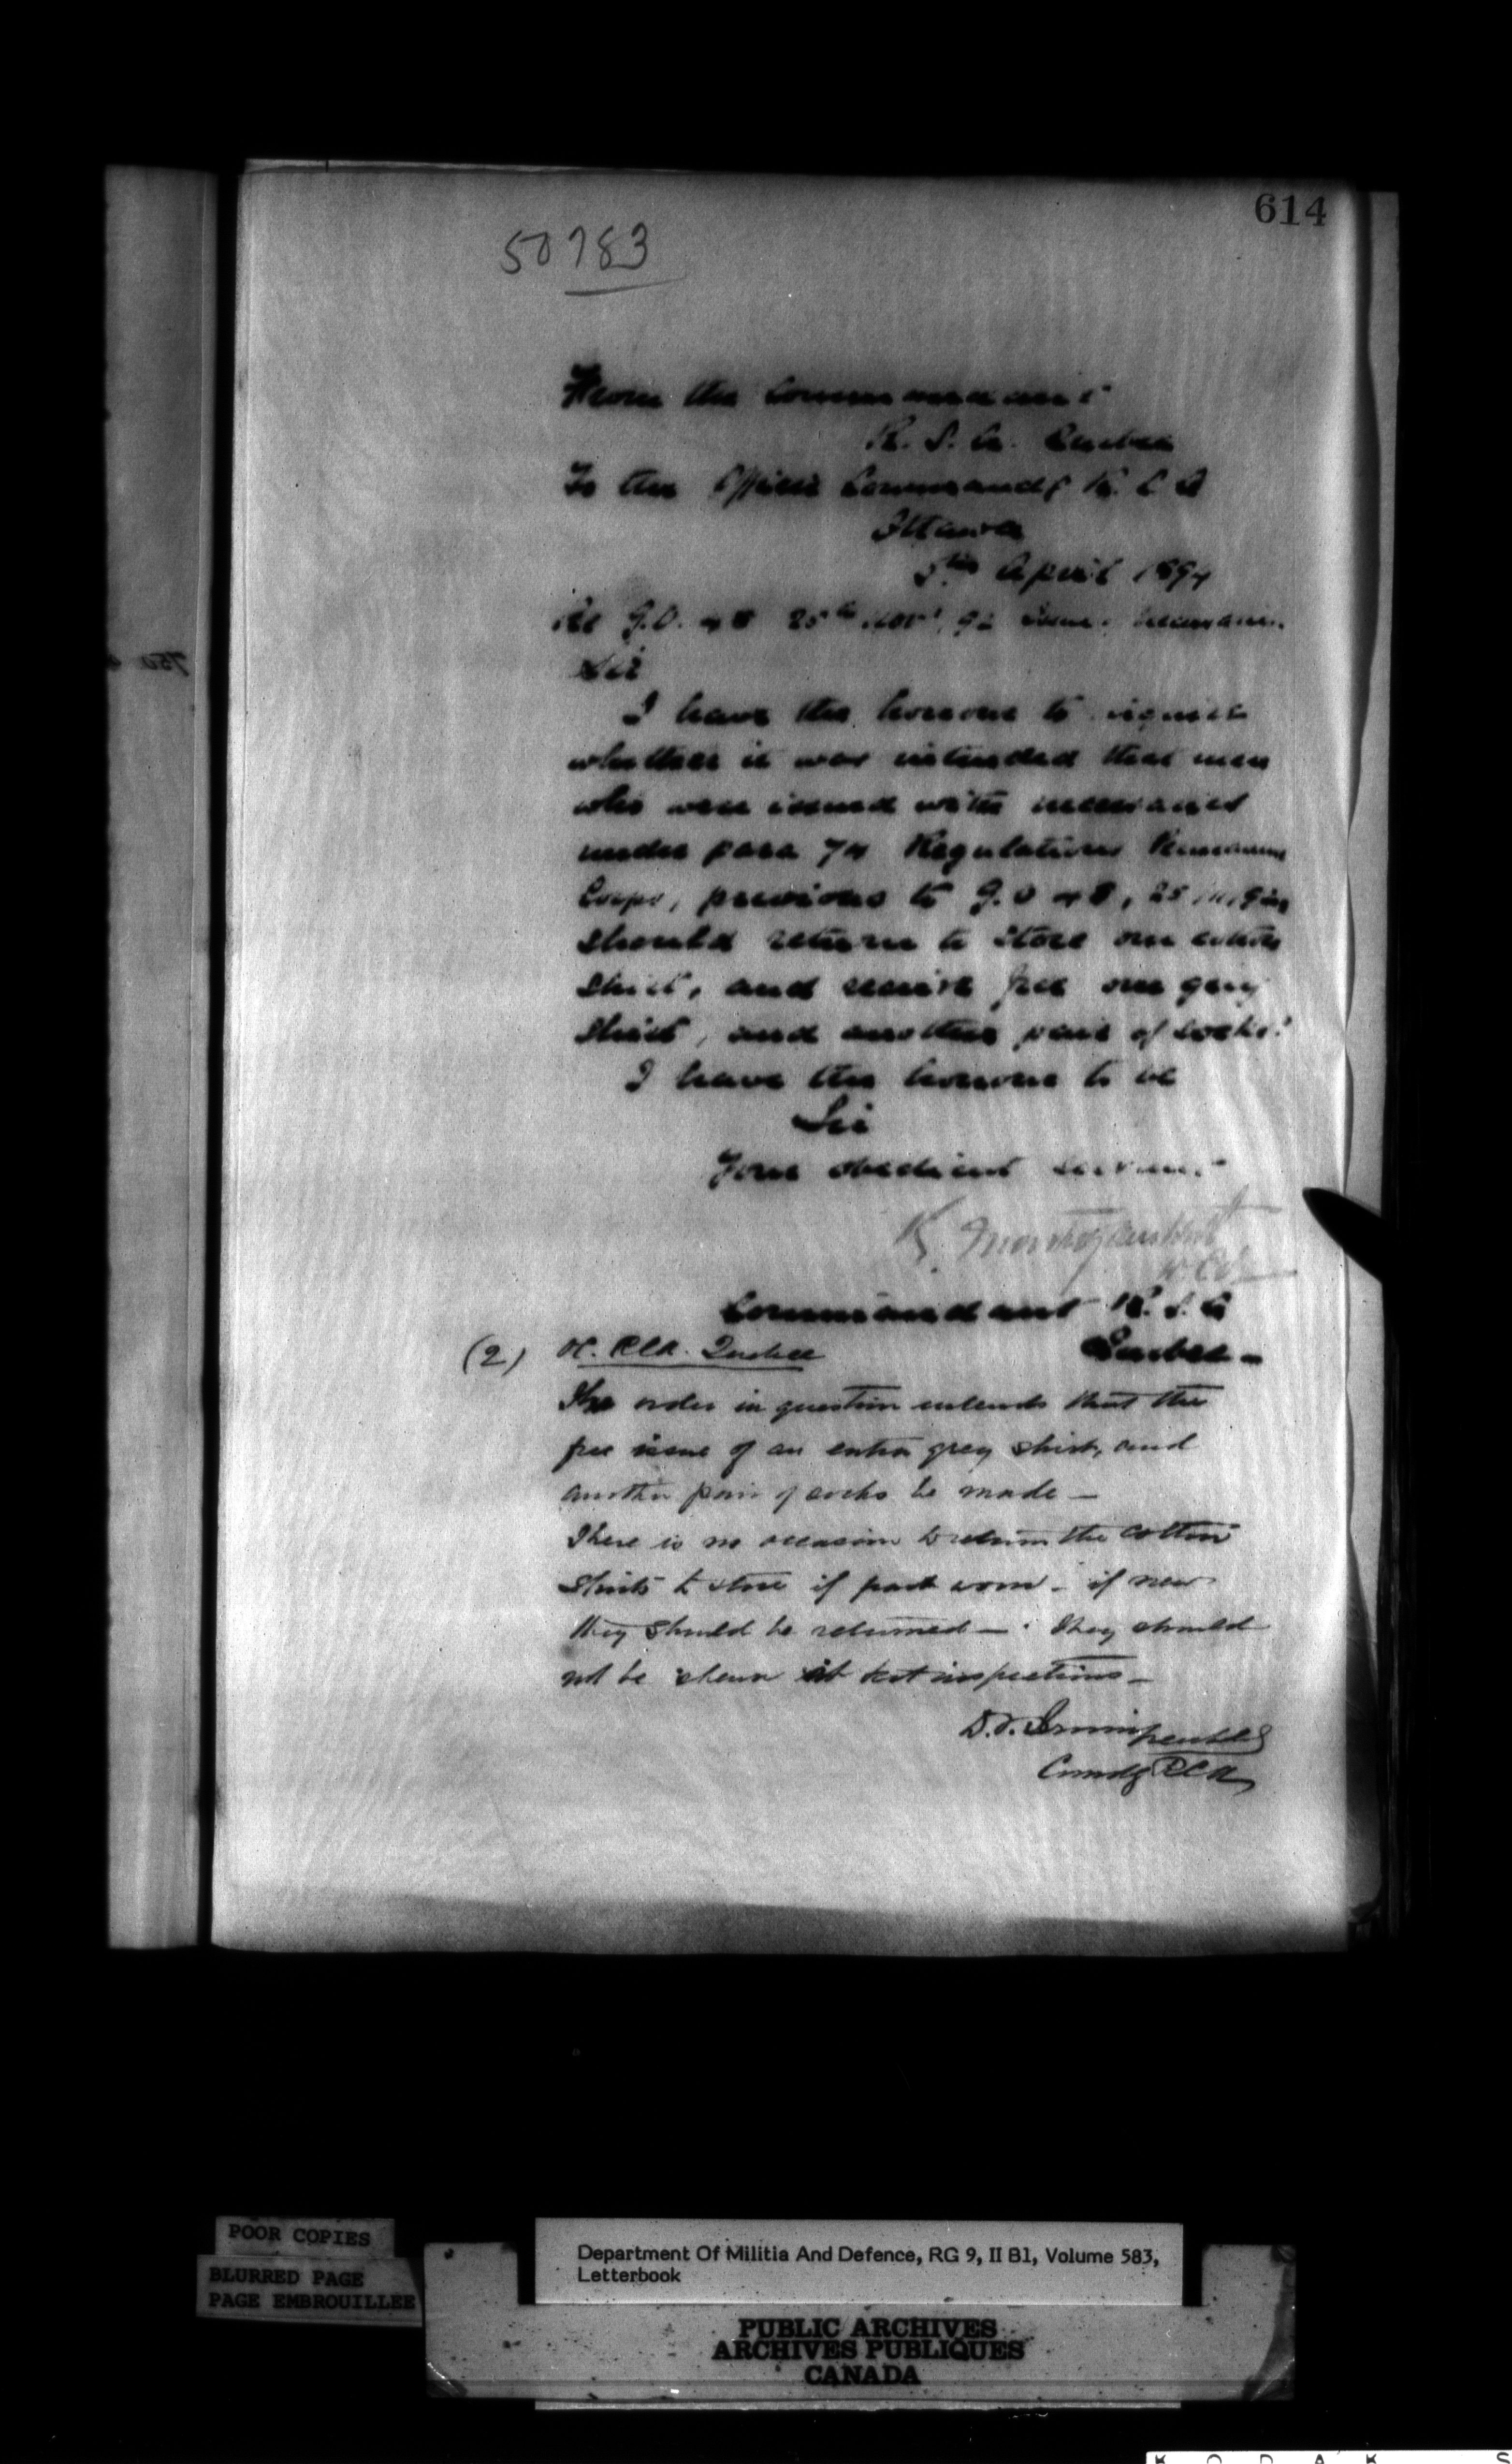 614
50783
From the Commandant
R. S. A. Quebec
To the Officer Commandg R. C. A
Ottawa
5th April 1894
Re G.O. 25th Nov 92 necessaries
Sir
I have the honour to inquire
whether it was intended that men
who were issued with necessaries
under para 74 Regulations Permanent
Corps, previous to G.O
should return to store one cotton
shirt, and receive free one grey
shirt, and another pair of socks?
I have the honour to be
Sir
Your obedient servant
Commandant R. S. A
Quebec -
(2) OC. RCA. Quebec
The order in question intends that the
free issue of an extra grey shirt, and
another pair of socks be made —
There is no occasion to return the cotton
shirts to store if part worn - if new
they should be returned — They should
not be shewn at kit inspections —
D. T. Irwin
Comdg RCA
POOR COPIES
BLURRED PAGE
PAGE EMBROUILLEE
Department Of Militia And Defence, RG 9, II B1, Volume 583,
Letterbook
PUBLIC ARCHIVES
ARCHIVES PUBLIQUES
CANADA